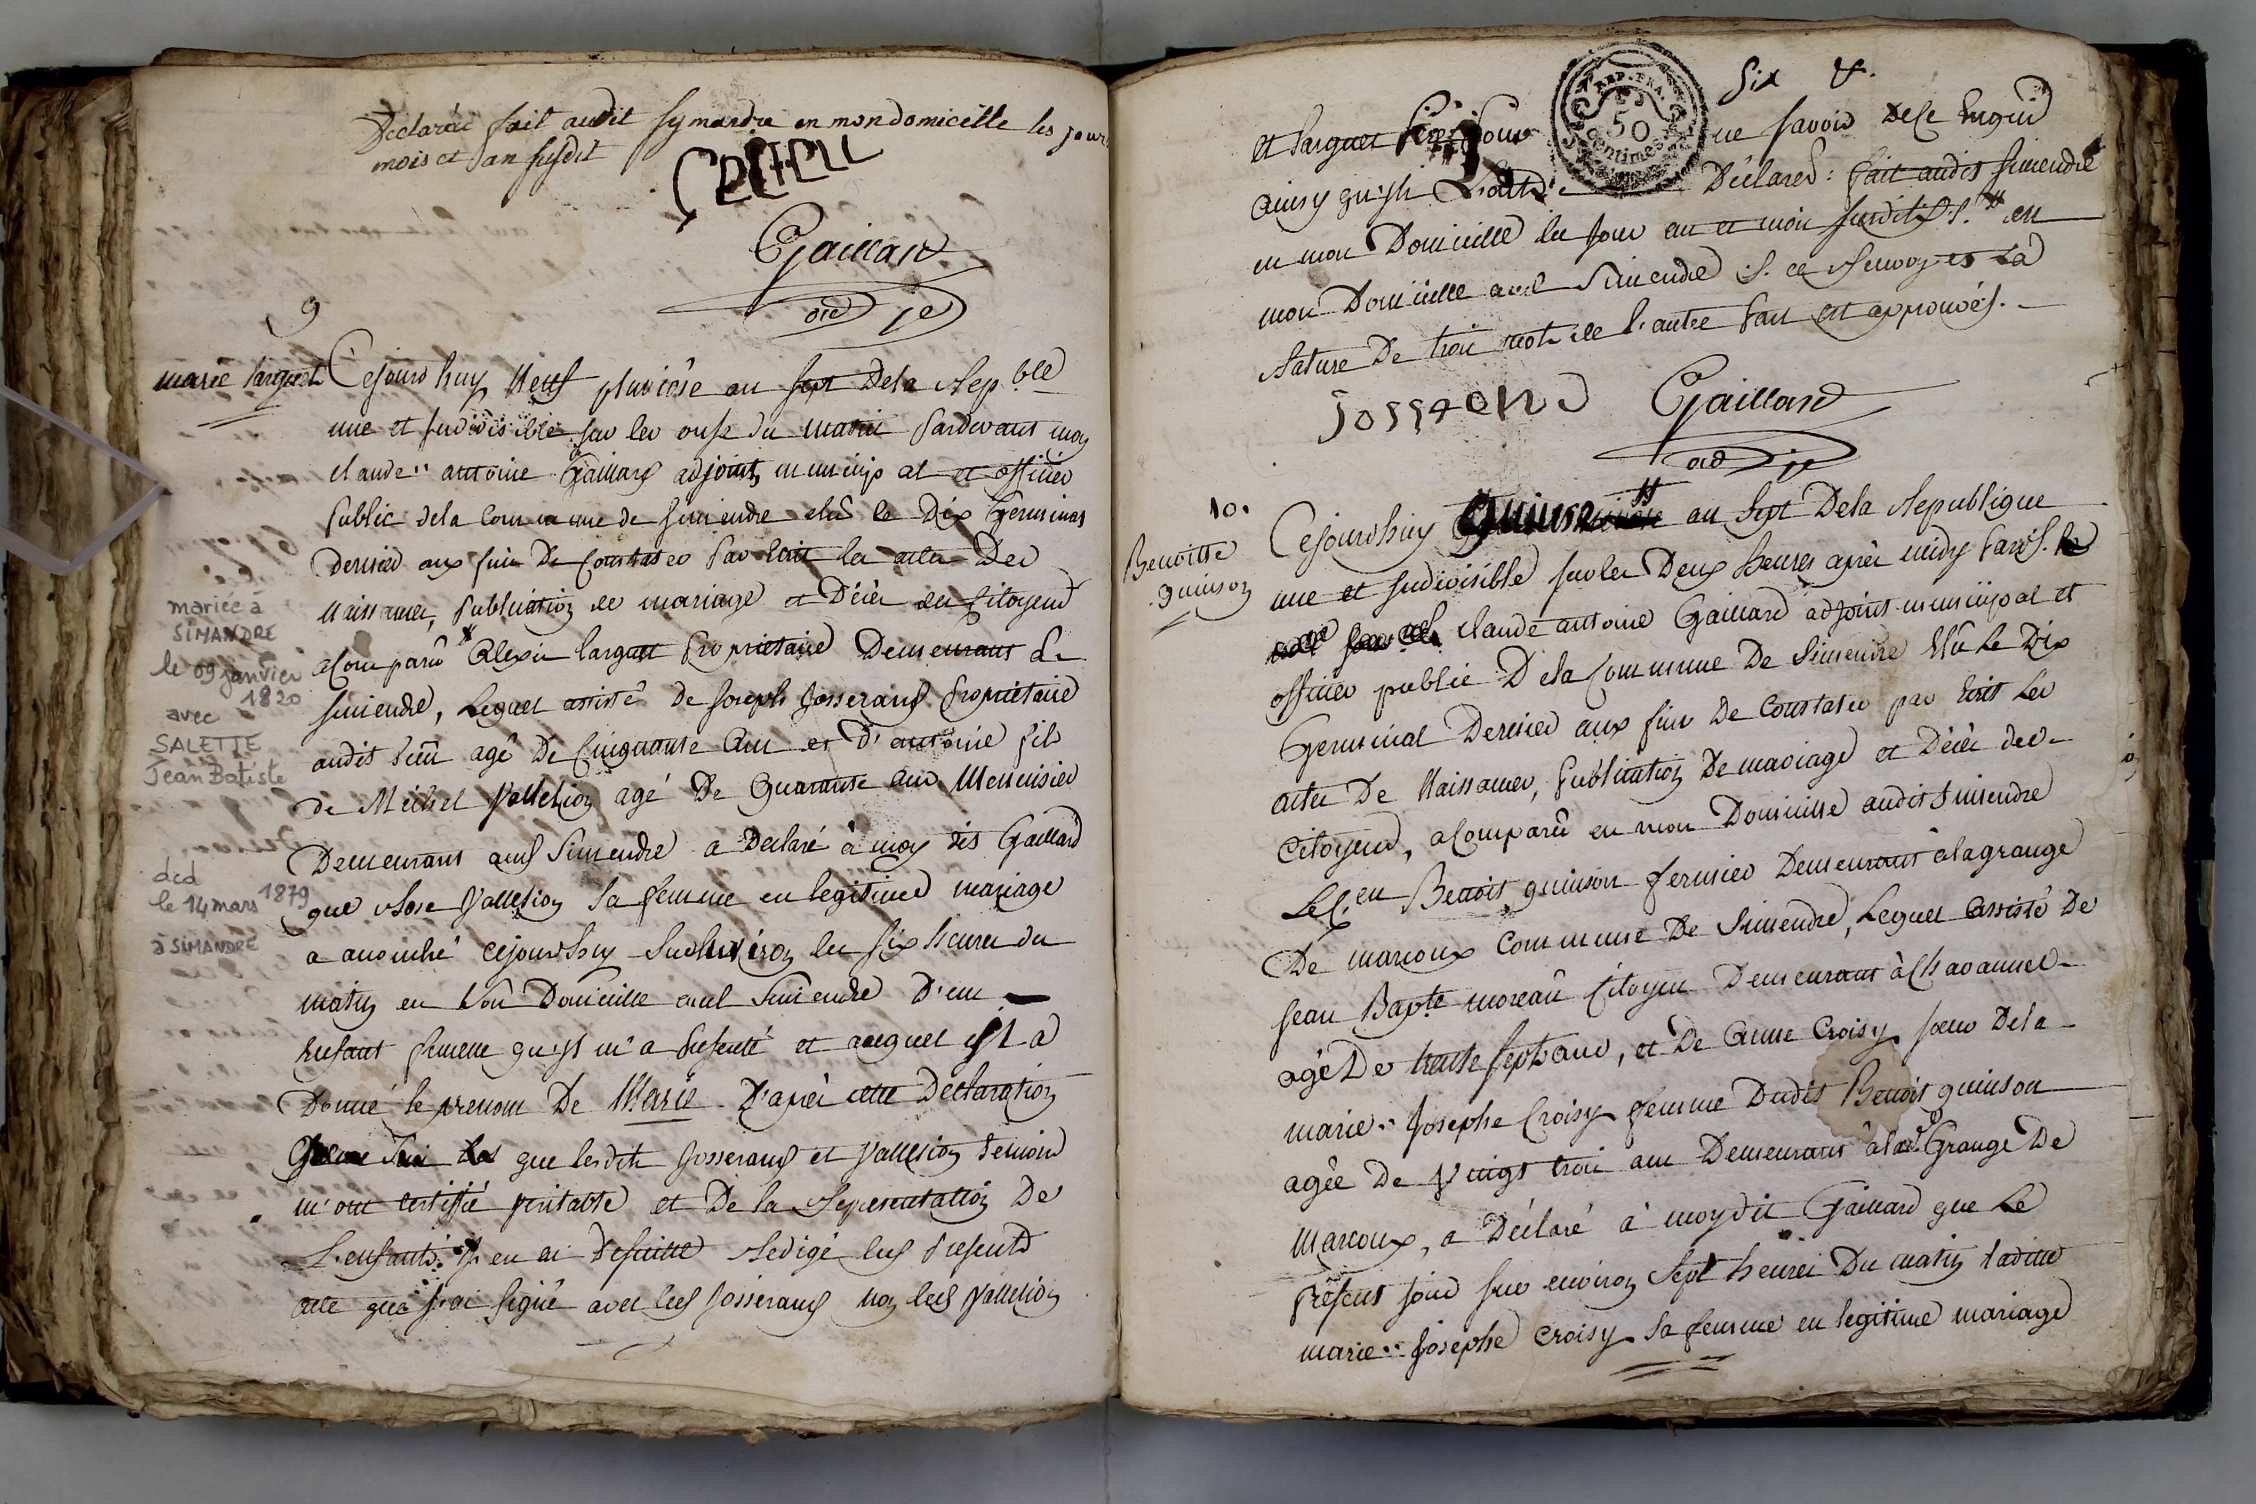 Déclarée fait audit symandre en mon domicille les jour
mois et an susdit
Gaillard
9
marie larguet
Cejourd'huy Neuf pluviôse an sept de la Rep.ble
une et indivisible sur les onse du matin pardevant moy
claude antoine Gaillard adjoint municipal et officier
public de la commune de simendre elû le Dix Germinal
dernier aux fins De Constater par Ecrit les actes Des
Naissances, publication de mariage et Décès des Citoyens
a Comparû Alexis larguet propriétaire Demeurant à
simendre, Lequel assisté de joseph josserand propriétaire
audit lieu agé De Cinquante Ans et D'antoine fils
de Michel Valletion agé De Quarante ans Menuisier
Demeurans aud Simendre a Declaré à moy dit Gaillard
que Rose Valletion Sa femme en legitime mariage
a accouché cejourd'huy sur environ les six heures du
matin en son Domicille aud Simendre D'un
Enfant femelle qu'il m'a présenté et auquel il a
Donné le prenom De Marie D'après cette Declaration
que lesdits josserand et Valletion témoins
m'ont certifié véritable et De la Représentation De
L'enfant j'en ai de suitte Redigé led présent
acte que j'ai signé avec led josserand non led Valletion
mariée à
SIMANDRE
le 09 janvier
1820
avec
SALETTE
Jean Batiste
dcd
le 14 mars 1879
à SIMANDRE
Six
et larguet pour ne savoir De ce Enquis
ainsy qu'ils Déclaré : fait audit simendre
en mon Domicille les jour an et mois susdit en
mon Domicille aud Simendre
Rature De trois mots de l'autre part est approuvés.
REP. FRA.
50
centimes
jossrand Gaillard
10.
Benoitte
quinson
Cejourd'huy Quinse an Sept De la Republique
une et Indivisible sur les Deux heures après midy
claude antoine Gaillard adjoint municipal et
officier public De la Commune De Simendre Elû le Dix
Germinal Dernier aux fins De Constater par Ecrit les
actes De Naissances, publication De mariage et Décès des
Citoyens, a Comparû en mon Domicille audit simendre
Le C.en Benoit quinson fermier Demeurant à la grange
De marcoux Commune De Simendre, Lequel assisté De
jean Bap.te moreau Citoyen Demeurant à Chavannes
agé De trente sept ans, et De Anne Croisy soeur De la
marie josephe Croisy femme Dudit Benoit quinson
agée De Vingt trois ans Demeurant à lad Grange De
Marcoux, a Déclaré à moy dit Gaillard que Le
présent jour sur environ Sept heures Du matin ladite
marie josephe Croisy sa femme en legitime mariage